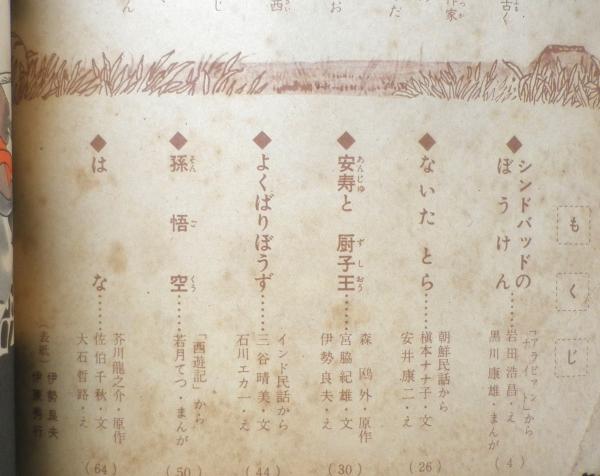 もくじ
シンドバッドの
ぼうけん……
「アラビアン
ナイト」から
岩田浩昌・え
黒川康雄・まんが
(4)
ないた とら……
朝鮮民話から
槇本ナナ子・文
安井康二・え
(26)
安寿と厨子王……
あんじゅ
ずしおう
森 鴎外・原作
宮脇紀雄・文
伊勢良夫・え
(30)
よくばりぼうず……
インド民話から
三谷晴美・文
石川エカ一・え
(44)
孫悟空……
そんごくう
「西遊記」から
若月てつ・まんが
(50)
はな……
芥川龍之介・原作
佐伯千秋・文
大石哲路・え
(64)
(表紙)伊勢良夫